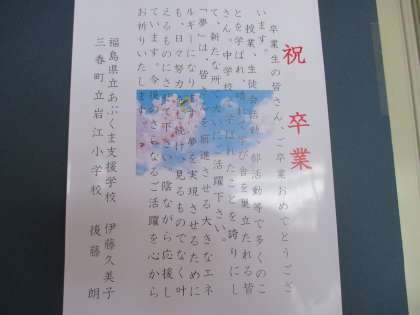 祝 卒業
卒業生の皆さん、ご卒業おめでとうござ
います。
授業、生徒 活動、部活動等で多くのこ
とを学ばれ、 学び舎を巣立たれる皆
さん。中学校 学ばれたことを誇りにし
て、新たな所 ご活躍下さい。
「夢」は、皆さ を前進させる大きなエネ
ルギーになりま 夢を実現させるために
も、日々努力を し続け、見るものでなく叶
えるものにさせて下さい。陰ながら応援し
ています。今後の さらなるご活躍を心から
お祈りいたします。
福島県立あぶくま支援学校 伊藤久美子
三春町立岩江小学校 後藤 朗